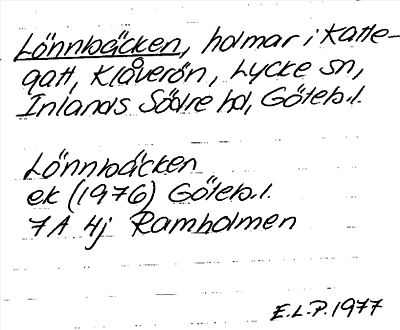 Lönnbäcken, holmar i Katte-
gatt, Klåverön, Lycke sn,
Inlands Södre hd, Göteb.l.
Lönnbäcken
ek (1976) Göteb.l.
7A 4j Ramholmen
E.L.P. 1977